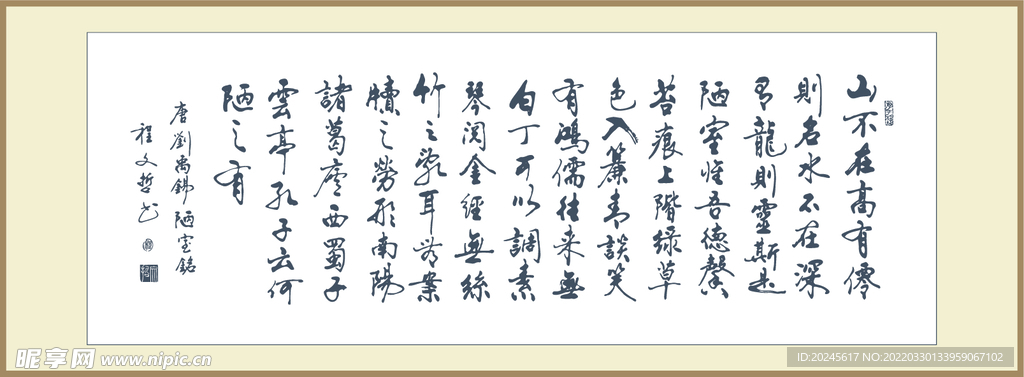 山不在高有僊
則名水不在深
有龍則靈斯是
陋室惟吾德馨
苔痕上階綠草
色入簾青談笑
有鴻儒往來無
白丁可以調素
琴閱金經無絲
竹之亂耳無案
牘之勞形南陽
諸葛廬西蜀子
雲亭孔子云何
陋之有
唐劉禹錫陋室銘
程文哲书
昵享网 www.nipic.cn
ID:20245617 NO:20220330133959067102